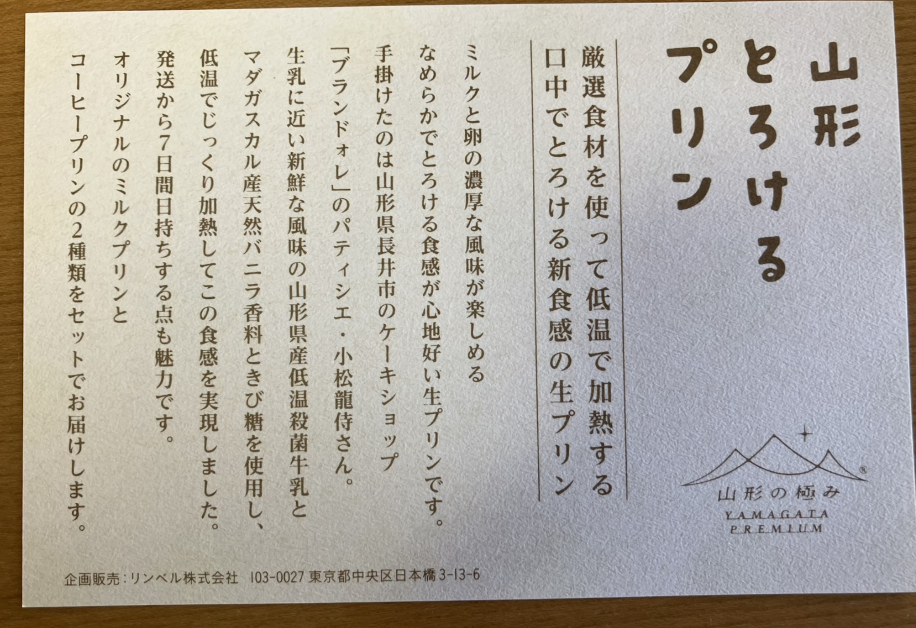 山形
とろける
プリン
厳選食材を使って低温で加熱する
口中でとろける新食感の生プリン
ミルクと卵の濃厚な風味が楽しめる
なめらかでとろける食感が心地好い生プリンです。
手掛けたのは山形県長井市のケーキショップ
「ブランドォレ」のパティシエ・小松龍侍さん。
生乳に近い新鮮な風味の山形県産低温殺菌牛乳と
マダガスカル産天然バニラ香料ときび糖を使用し、
低温でじっくり加熱してこの食感を実現しました。
発送から7日間日持ちする点も魅力です。
オリジナルのミルクプリンと
コーヒープリンの2種類をセットでお届けします。
山形の極み
YAMAGATA
PREMIUM
®
企画販売:リンベル株式会社 103-0027 東京都中央区日本橋3-13-6